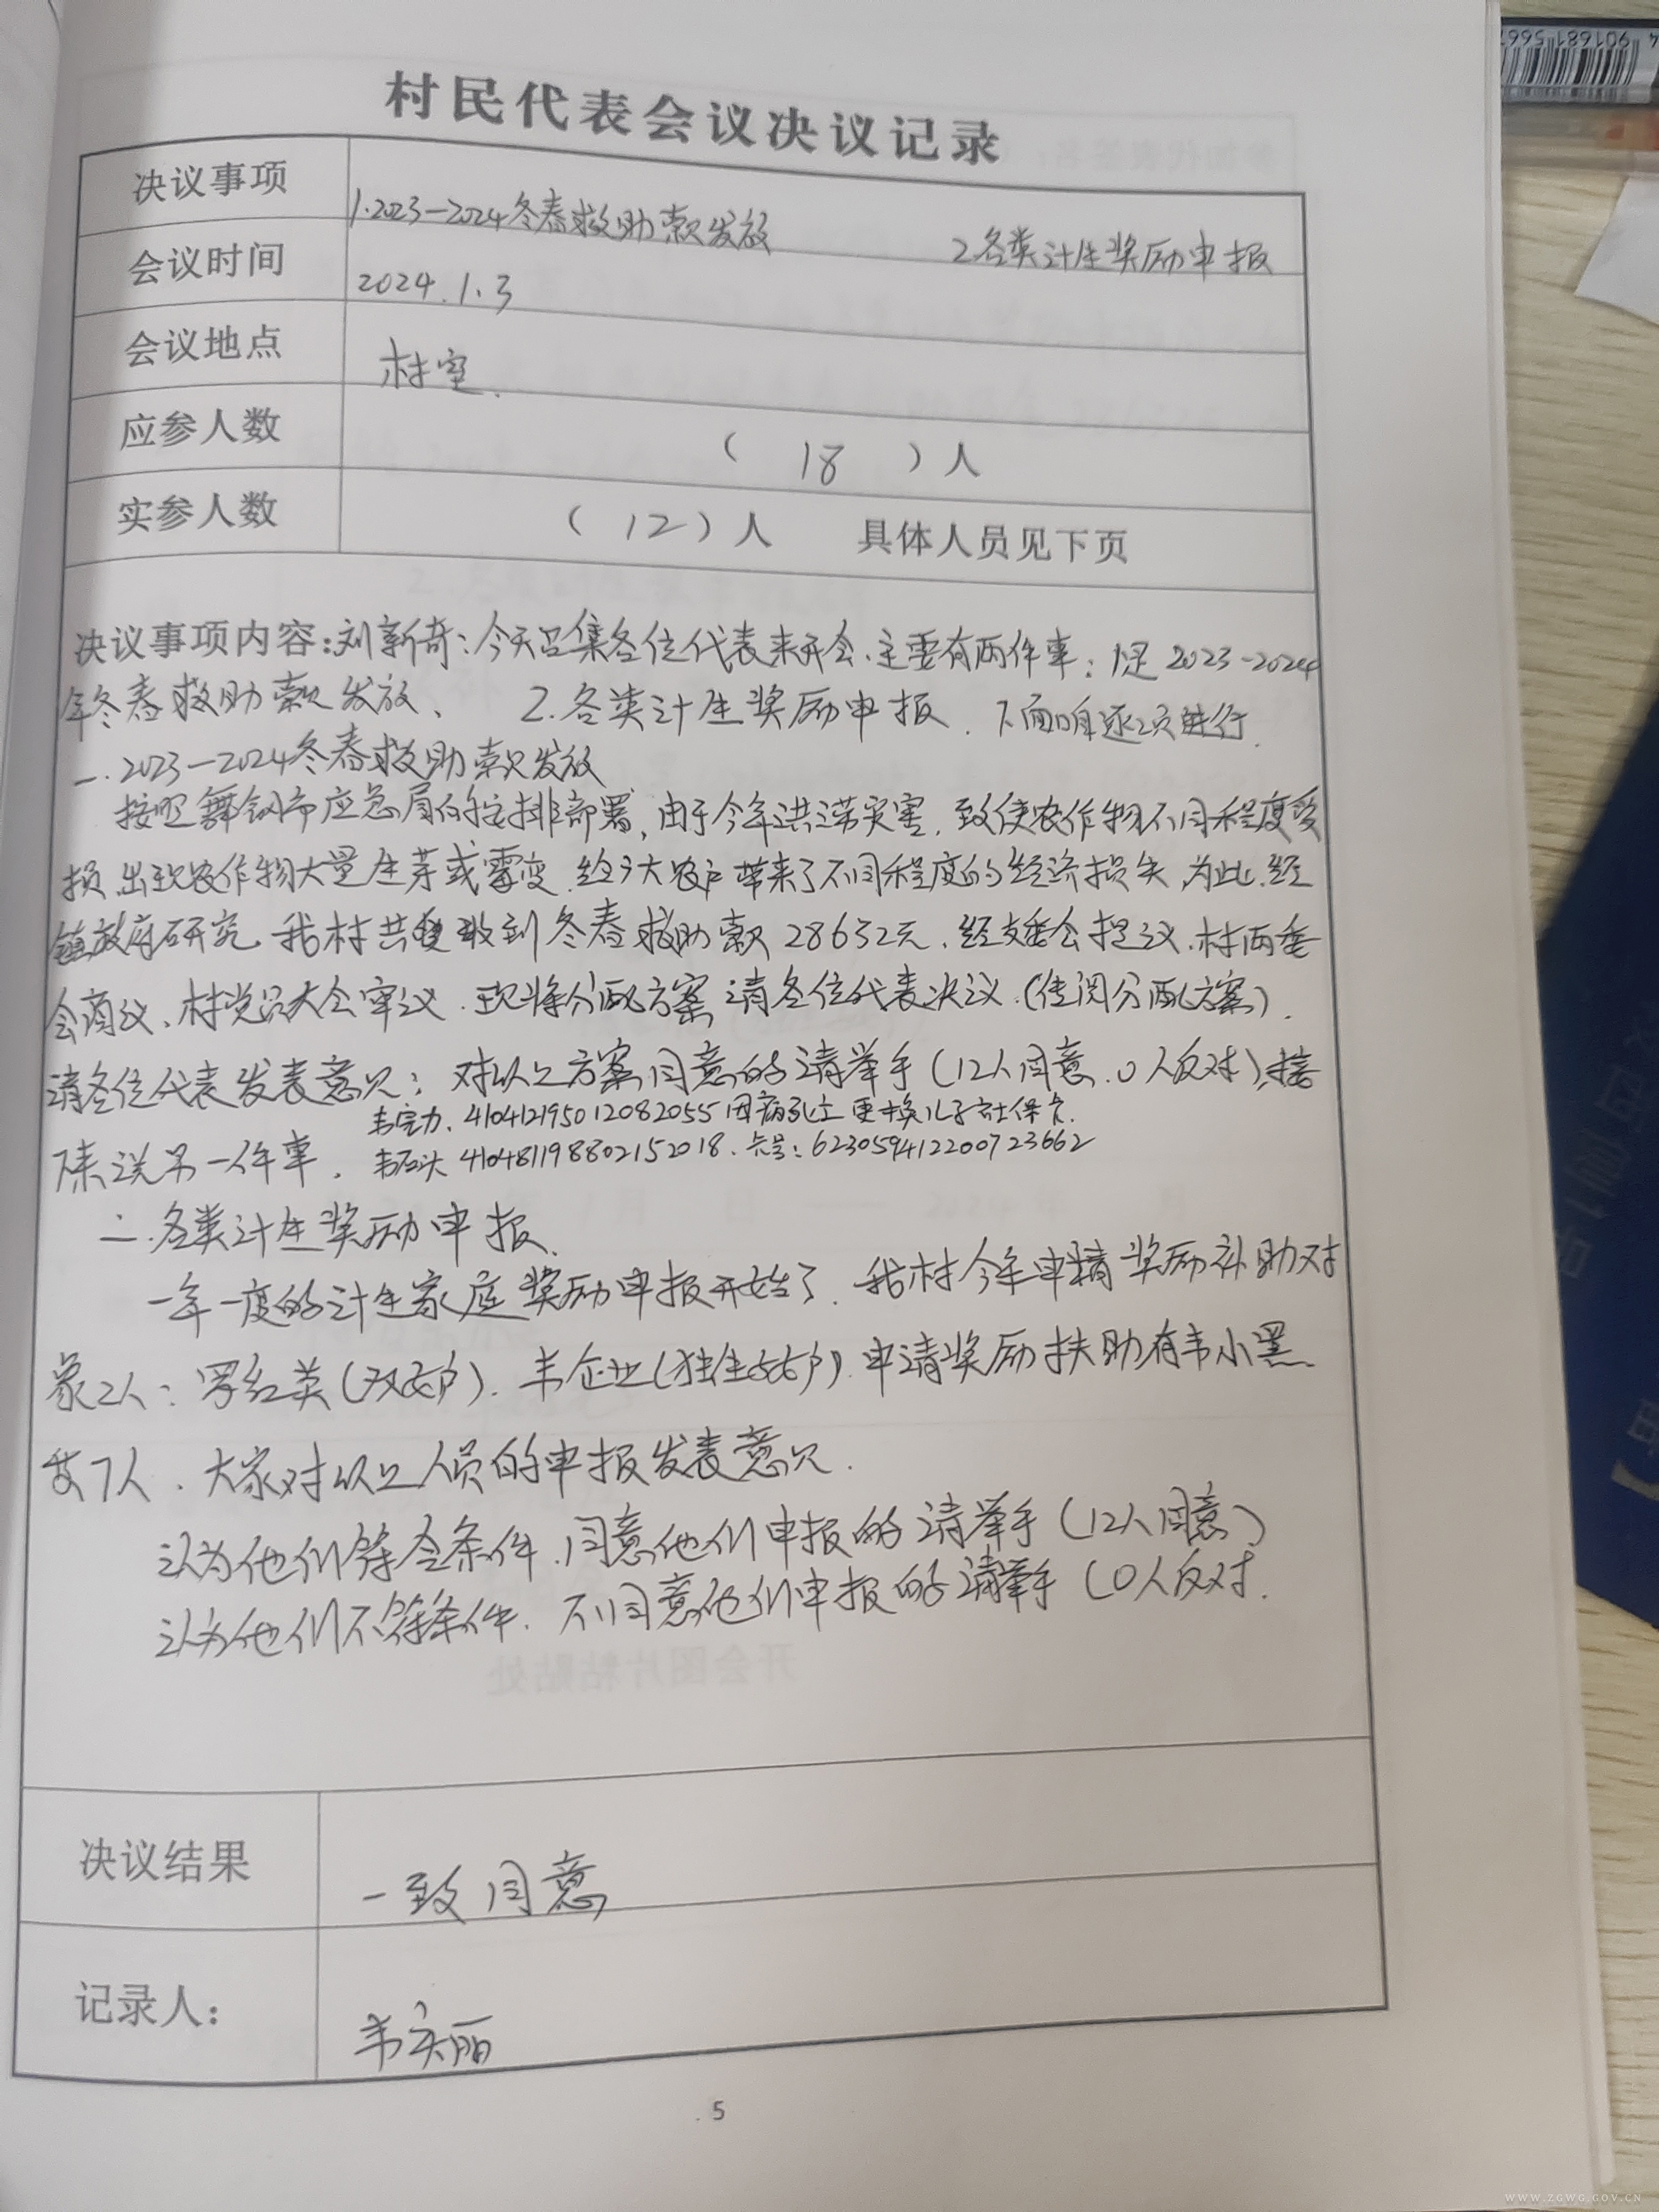 村民代表会议决议记录
决议事项 1.2023—2024冬春救助款发放 2各类计生奖励申报
会议时间 2024.1.3
会议地点 村室.
应参人数 ( 18 )人
实参人数 ( 12 )人 具体人员见下页
决议事项内容:刘新奇:今天召集各位代表来开会.主要有两件事:1是2023-2024
年冬春救助款发放、 2.各类计生奖励申报.下面咱逐项进行.
一.2023—2024冬春救助款发放
按照舞钢市应急局的安排部署,由于今年洪涝灾害,致使农作物不同程度受
损,出现农作物大量生芽或霉变.给广大农户带来了不同程度的经济损失,为此,经
镇政府研究,我村共收到冬春救助款28632元.经支委会提议.村两委
会商议、村党员大会审议.现将分配方案请各位代表决议.(传阅分配方案).
请各位代表发表意见:对以上方案同意的请举手(12人同意.0人反对),接
韦宝力.410412195012082055因病死亡更换儿子社保卡.
下来说另一件事. 韦石头 410481198802152018.卡号:623059412200723662
二.各类计生奖励申报.
一年一度的计生家庭奖励申报开始了.我村今年申请奖励补助对
象2人:罗红英(双女户).韦企业(独生女户).申请奖励扶助有韦小黑
共7人.大家对以上人员的申报发表意见.
认为他们符合条件.同意他们申报的请举手(12人同意)
认为他们不符条件.不同意他们申报的请举手(0人反对.
开会图片粘贴处
决议结果 一致同意
记录人: 韦
5
WWW.ZGWG.GOV.CN